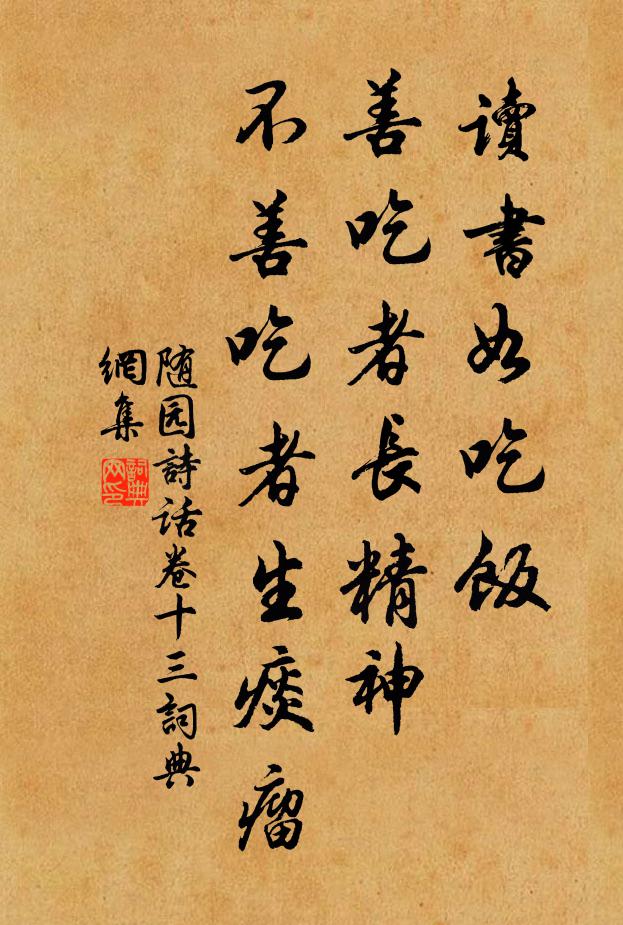 讀書如吃飯
善吃者長精神
不善吃者生痰瘤
随园詩话卷十三詞典
網集
詞典
网印